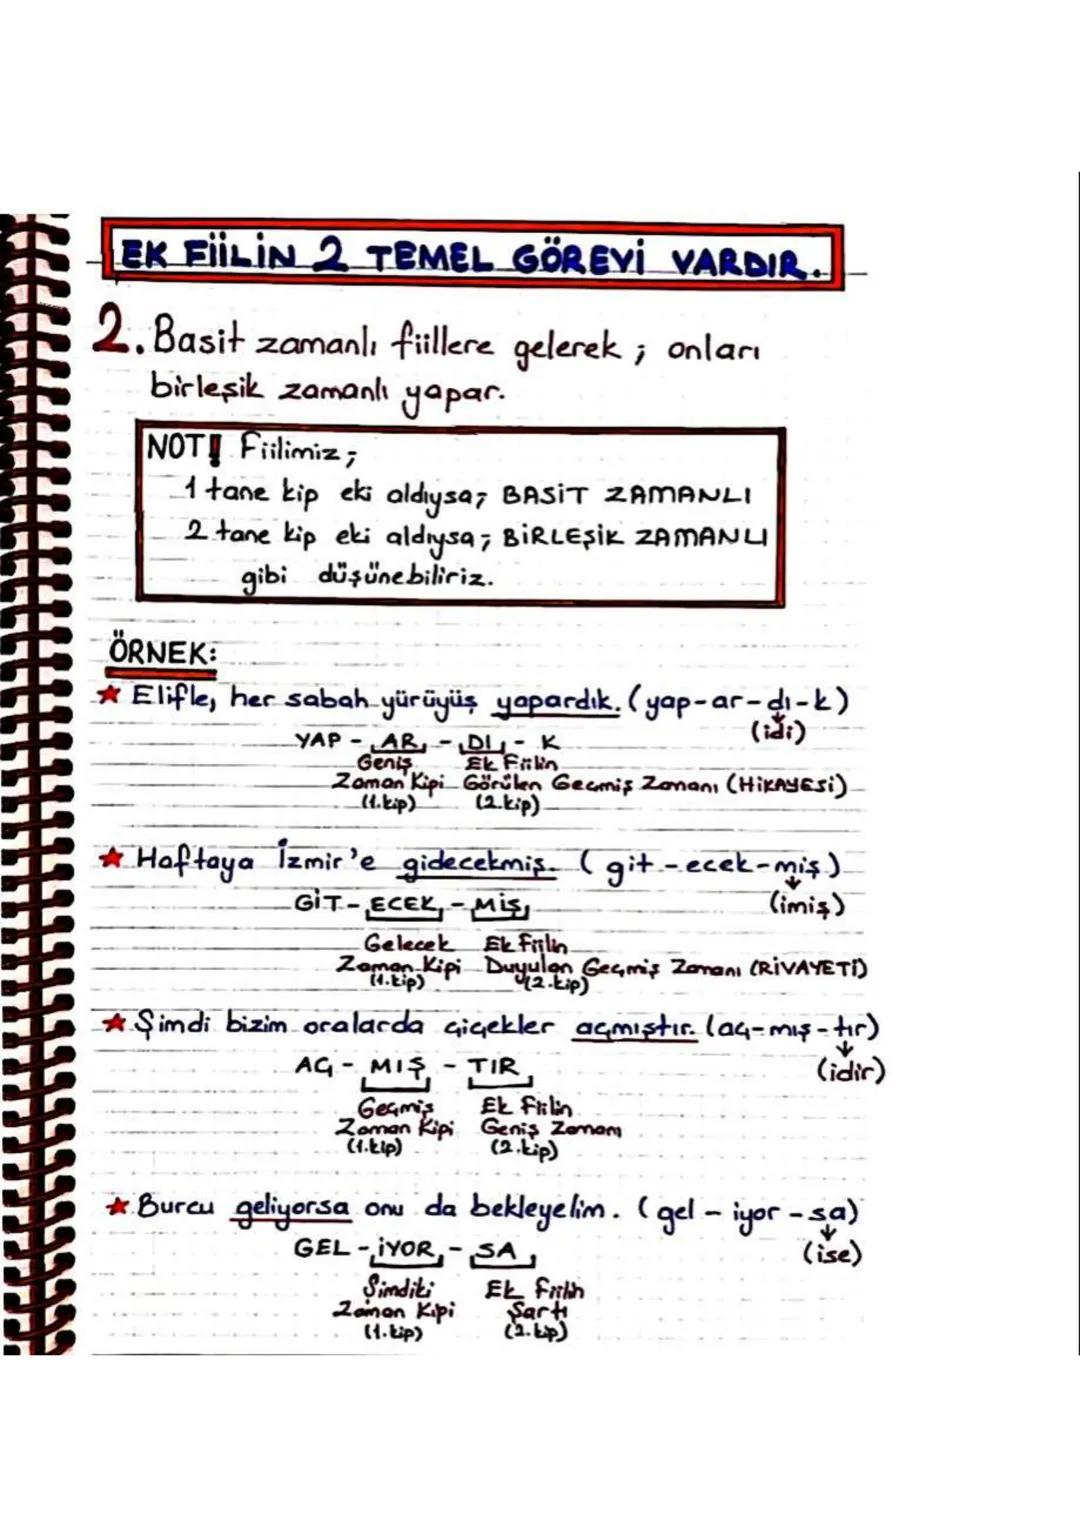 EK FİİLİN 2 TEMEL GÖREVİ VARDIR.
2. Basit zamanlı fiillere gelerek ; onları
birleşik zamanlı yapar.
NOT!! Fiilimiz ;
1 tane kip eki aldıysa; BASİT ZAMANLI
2 tane kip eki aldıysa; BİRLEŞİK ZAMANLI
gibi düşünebiliriz.
ÖRNEK:
★ Elifle, her sabah yürüyüş yapardık. (yap-ar-dı-k)
(idi)
YAP - AR - DI - K
Geniş Ek Fiilin
Zaman Kipi Görülen Geçmiş Zamanı (HİKAYESİ)
(1.kip) (2.kip)
★ Haftaya İzmir'e gidecekmiş. ( git - ecek-miş)
GİT - ECEK - MİŞ (imiş)
Gelecek Ek Fiilin
Zaman Kipi Duyulan Geçmiş Zamanı (RİVAYETİ)
(1.kip) (2.kip)
★ Şimdi bizim oralarda çiçekler açmıştır. (aç-mış-tır)
AÇ - MIŞ - TIR (idir)
Geçmiş Ek Fiilin
Zaman Kipi Geniş Zamanı
(1.kip) (2.kip)
★ Burcu geliyorsa onu da bekleyelim. ( gel - iyor - sa)
GEL - İYOR - SA (ise)
Şimdiki Ek Fiilin
Zaman Kipi Şartı
(1.kip) (2.kip)